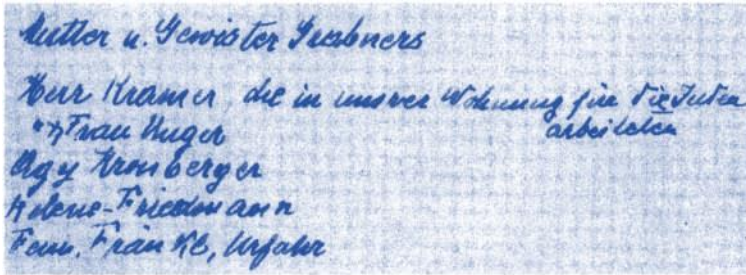 Mutter u. Gewister Grabners
Herr Kramer, die in unsrer Wohnung für die Juden
" Frau Unger arbeiteten
Kronberger
Helene-Friedmann
Fam. Fränkl, Urfahr